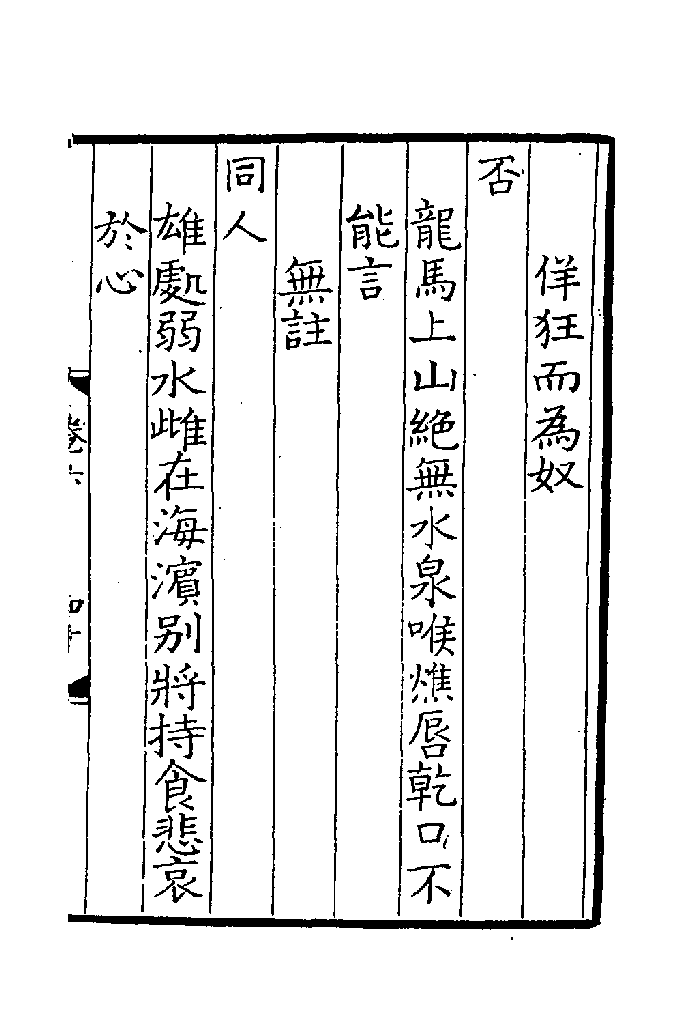 佯狂而為奴
否
龍馬上山絶無水泉喉燋唇乾口不
能言
無註
同人
雄處弱水雌在海濵别將持食悲哀
於心
卷六